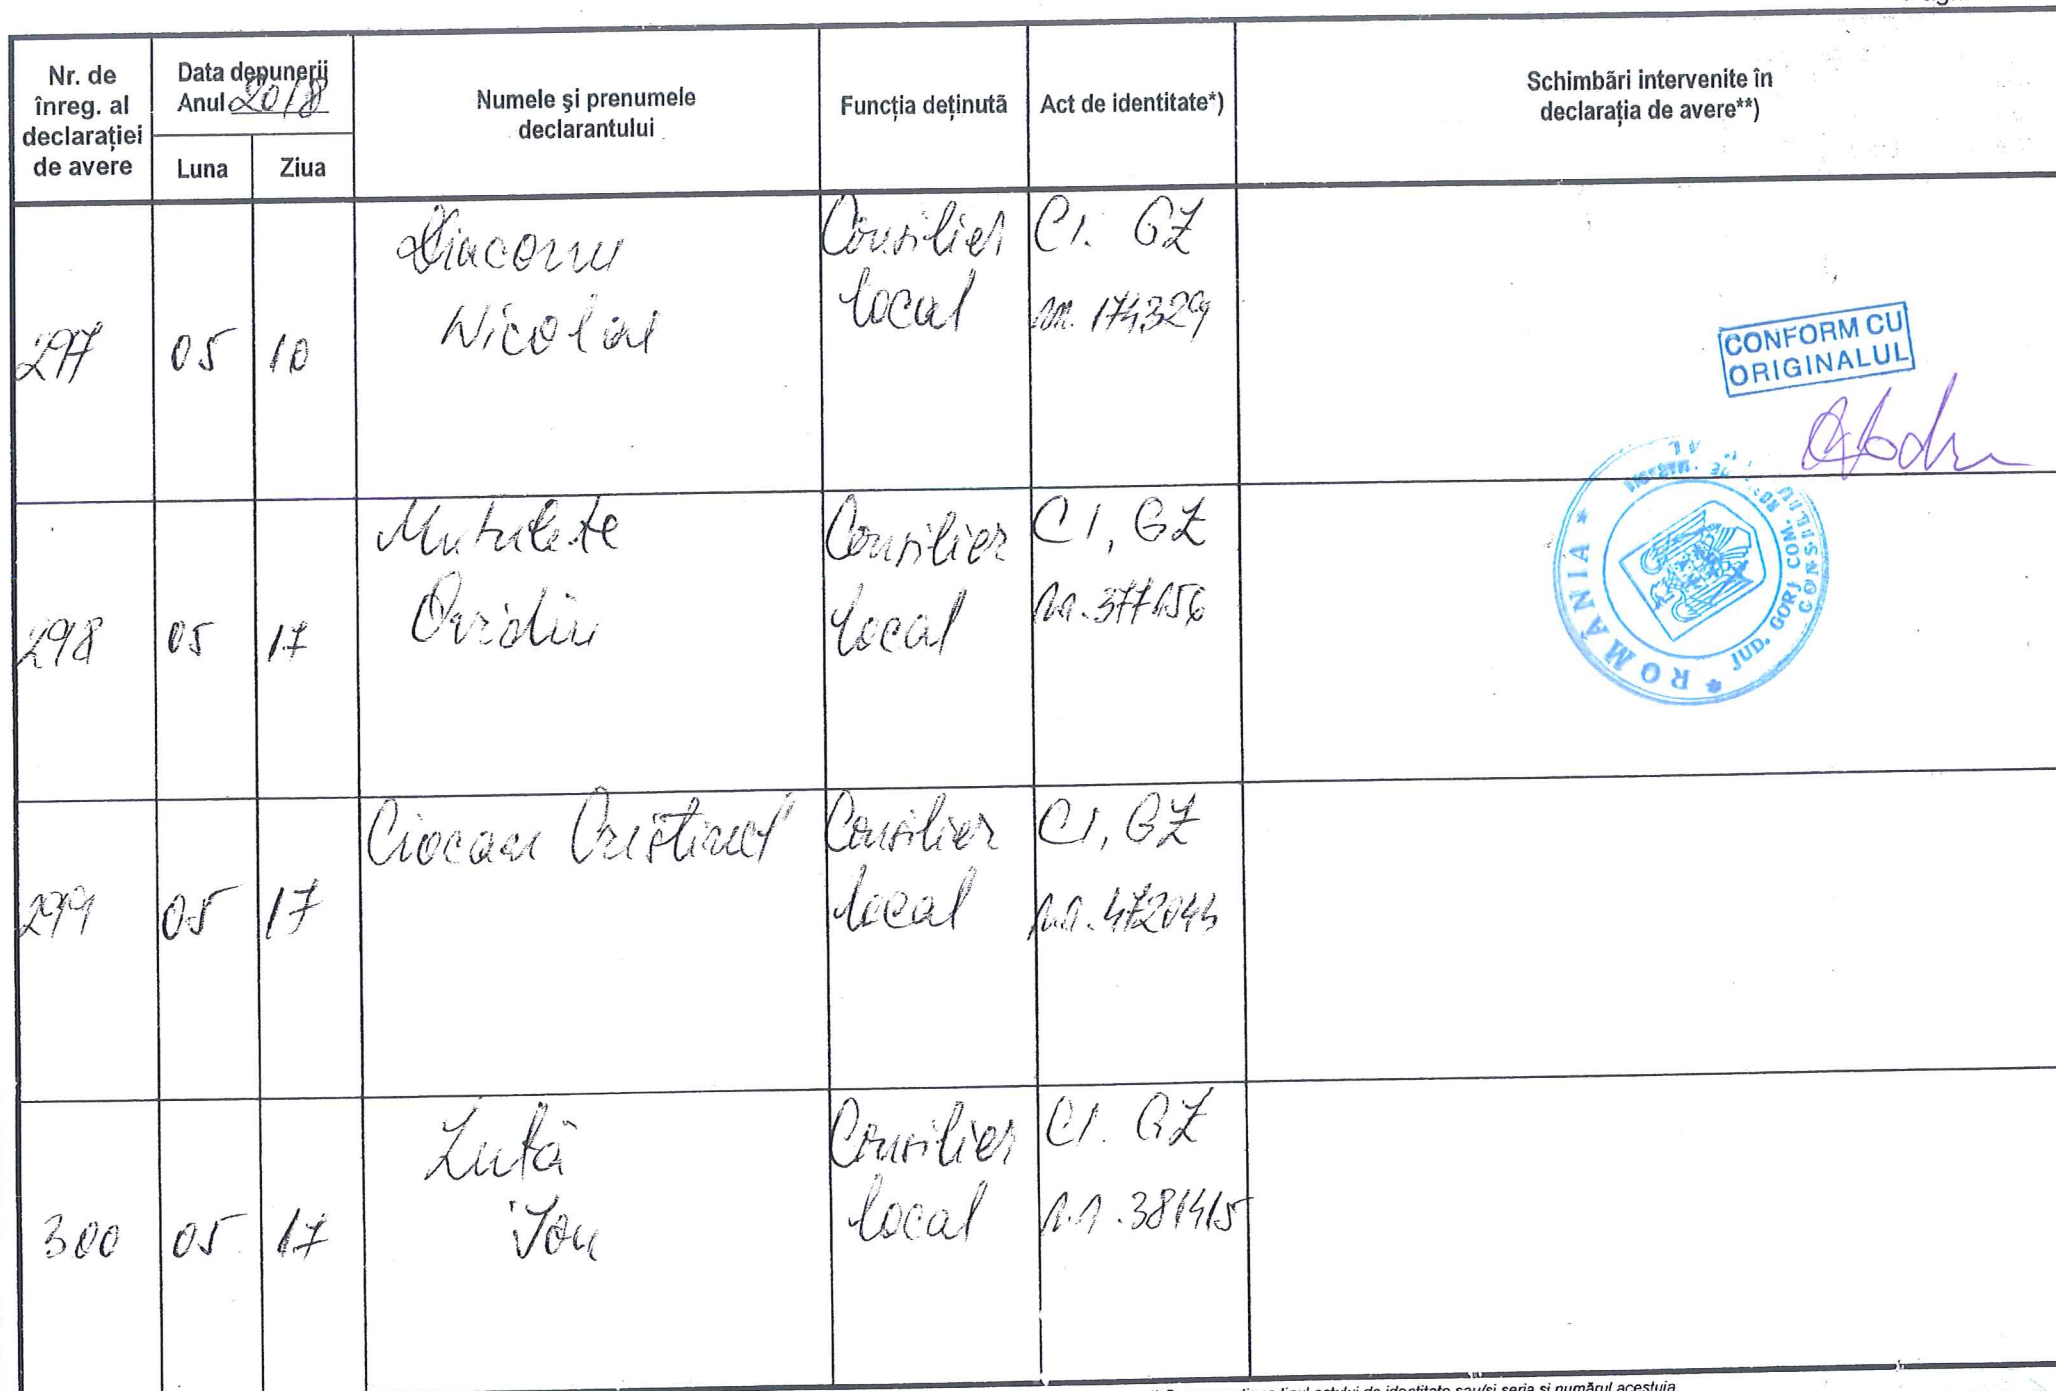 Nr. de
înreg. al
declarației
de avere
Data depunerii
Anul 2018
Luna
Ziua
Numele și prenumele
declarantului
Funcția deținută
Act de identitate*)
Schimbări intervenite în
declarația de avere**)
297
05
10
Diaconu
Nicolae
Consilier
local
CI. GZ
nr. 174329
CONFORM CU
ORIGINALUL
298
05
17
Mutulete
Ovidiu
Consilier
local
CI, GZ
nr. 377156
* ROMÂNIA *
JUD. GORJ COM.
CONSILIU
299
05
17
Ciocan Cristinel
Consilier
local
CI, GZ
nr. 472044
300
05
17
Lută
Ion
Consilier
local
CI. GZ
nr. 381415
actului de identitate sau/și seria și numărul acestuia